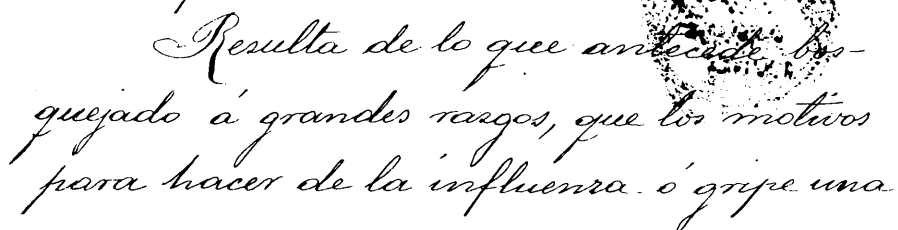 Resulta de lo que antecede bos-
quejado á grandes razgos, que los motivos
para hacer de la influenza ó gripe una